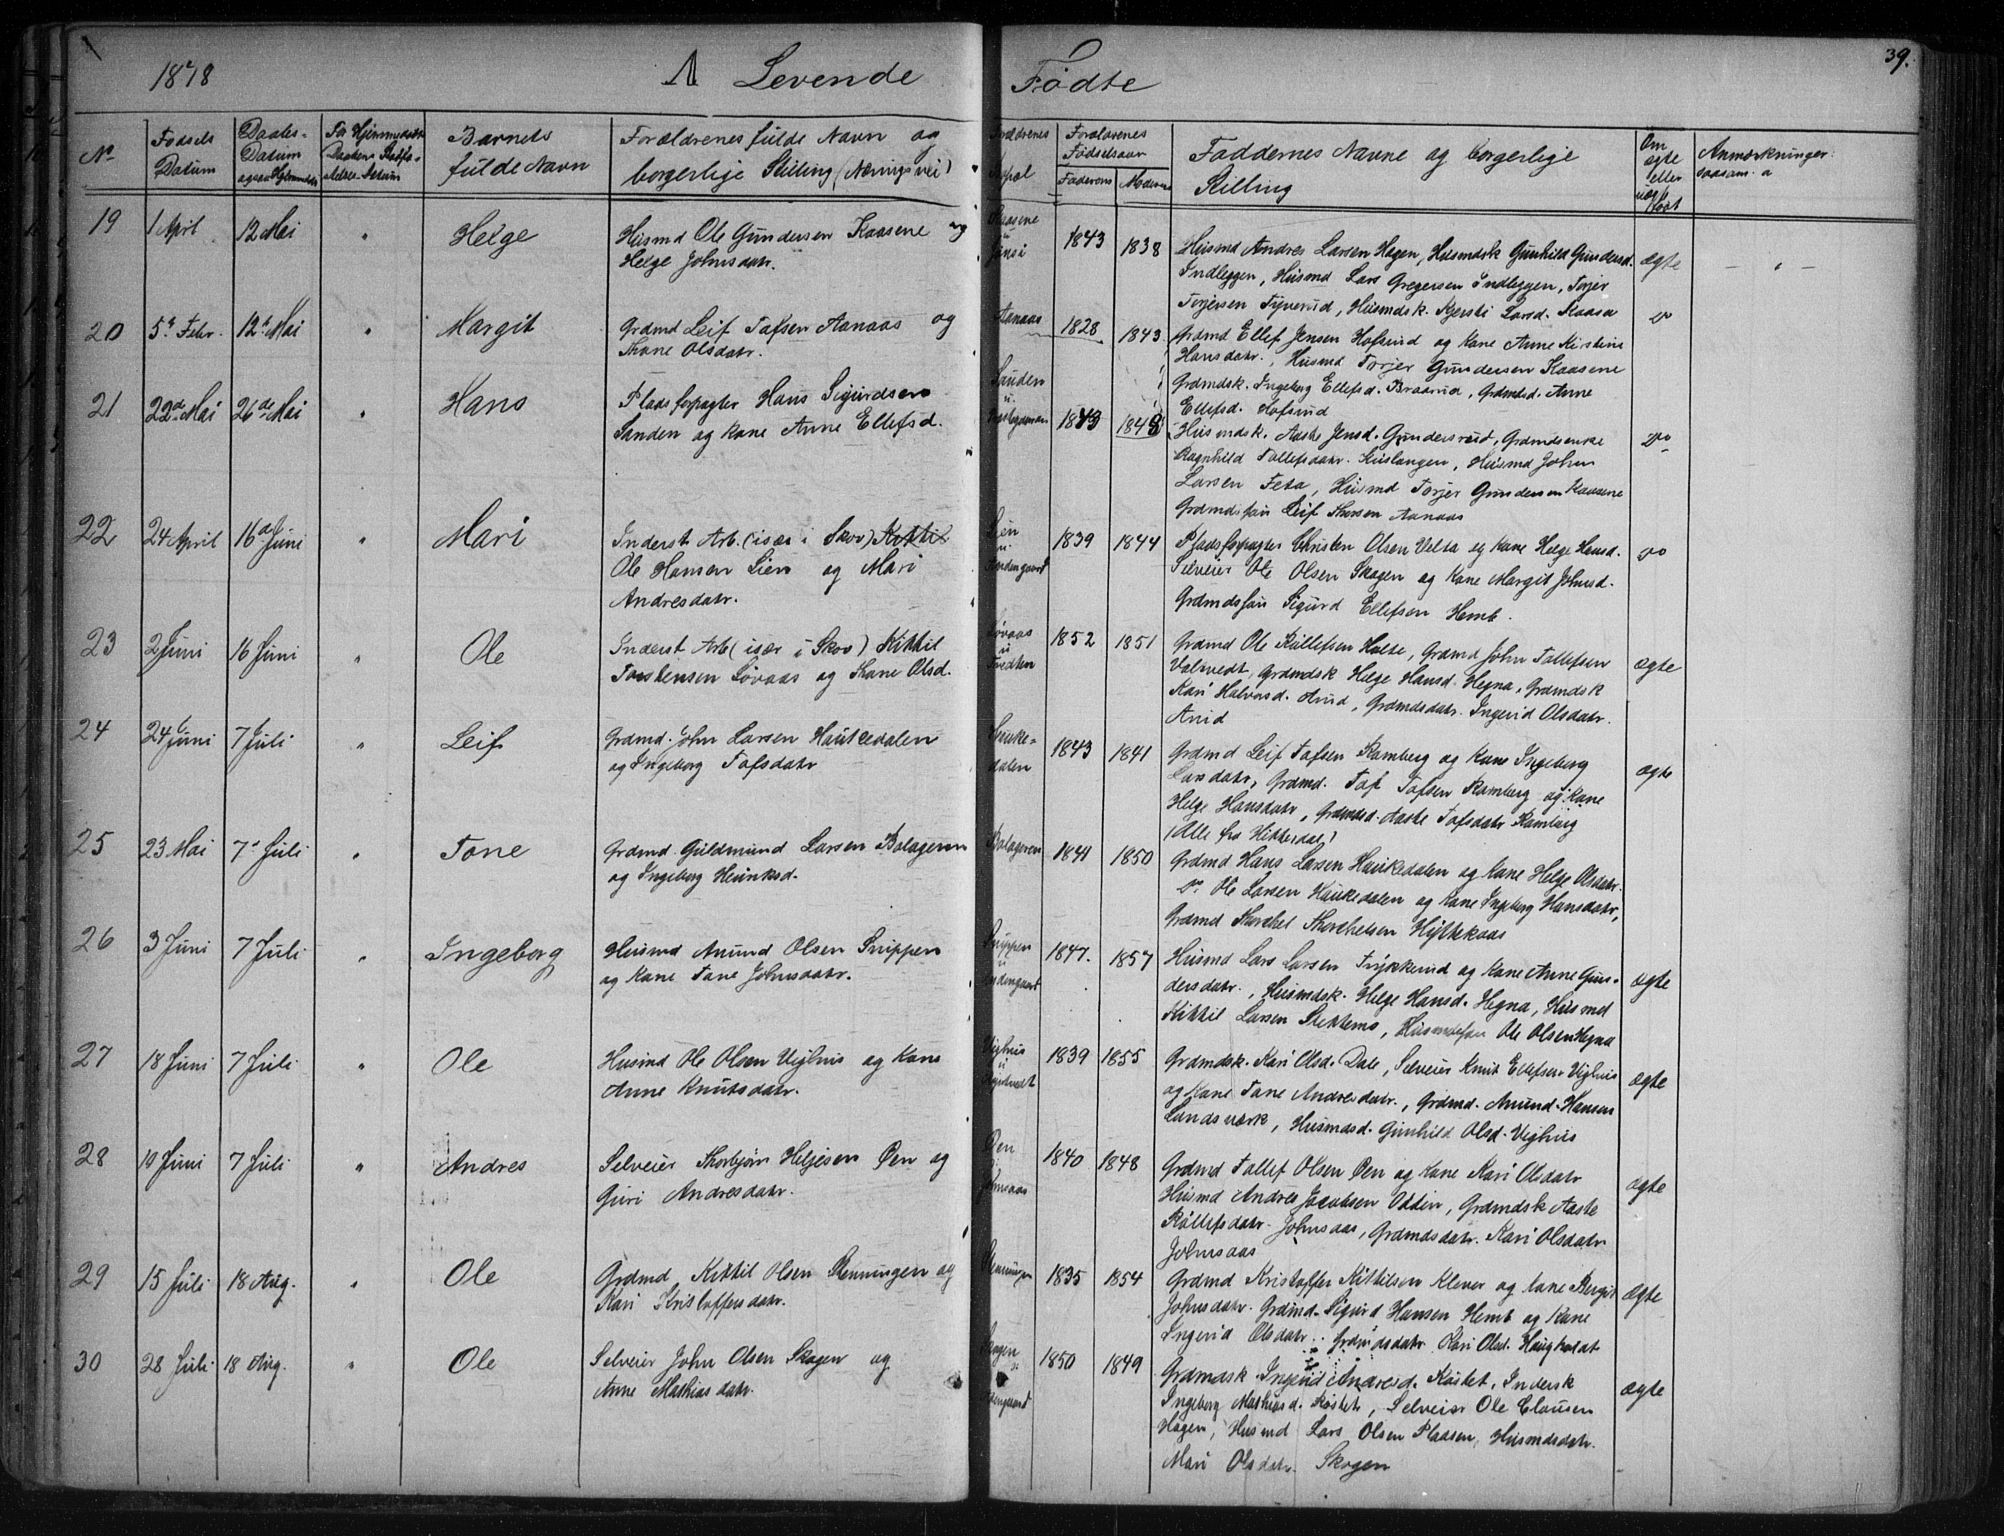 1878
A Levende Fødte
39.
No
Fødsels Datum
Daabs- Datum
Barnets fulde Navn
Forældrenes fulde Navn og borgerlige Stilling (Næringsvei)
Forældrenes Fødselsaar
Faderens Moderens
Faddernes Navne og borgerlige Stilling
Om ægte eller
Anmærkninger
19 1 April 12 Mai " Helge
Husmd Ole Gundersen Kaasene og
Helge Johnsdatr.
1843 1838
Husmd Andres Larsen Hagen, Husmdsk Gunhild Gundersd.
Indleggen, Husmd Lars Gregersen Indleggen, Torjer
Torjersen Tyverud, Husmdsk. Kjersti Larsd. Kaasa
ægte
20 5t Febr. 12t Mai " Margit
Grdmd Leif Tofsen Aanaas og
Thone Olsdatr.
Aanaas 1828 1843
Grdmd Ellef Jensen Hofsund og Kone Anne Kirstine
Hansdatr., Husmd Torjer Gundersen Kaasene
Grdmdsk. Ingeborg Ellefsd. Braarud, Grdmdsd. Anne
Ellefsd. Hofsund
do
21 22de Mai 26de Mai " Hans
Pladsforpagter Hans Sigurdsen
Sanden og Kone Anne Ellefsd.
Sanden 1843 1848
Husmdsk. Aaste Jensd. Gundersrud, Grdmdsenke
Ragnhild Tollefsdatr., Husmd John
Larsen Feta, Husmd Torjer Gundersen Kaasene
Grdmdssøn Leif Thorsen Aanaas
do
22 24 April 16de Juni " Mari
Inderst Arb. (især i Skov) Kittil
Ole Hansen Lien og Mari
Andresdatr.
Lien 1839 1844
Pladsforpagter Christen Olsen Velta og Kone Helge Hansd.
Selveier Ole Olsen Skogen og Kone Margit Johnsd.
Grdmdssøn Sigurd Ellefsen Hemb.
do
23 2 Juni 16 Juni " Ole
Inderst Arb (især i Skov) Kittil
Torstensen Løvaas og Thone Olsd.
Løvaas 1852 1851
Grdmd Ole Kittilsen Holte, Grdmd John Tollefsen
Valsvedt, Grdmdsk Helge Hansd. Hegna, Grdmdsk
Kari Halvorsd. Aruid, Grdmdsdatr. Ingerid Olsdatr.
Aruid
ægte
24 24 Juni 7 Juli " Leif
Grdmd. John Larsen Haukedalen
og Ingeborg Tofsdatr
Haukedalen 1843 1841
Grdmd Leif Tofsen Ramberg og Kone Ingeborg
Larsdatr, Grdmd. Tof Tofsen Ramberg og Kone
Helge Hansdatr, Grdmdsd. Aaste Tofsdatr Ramberg
(Alle fra Hitterdal)
ægte
25 23 Mai 7 Juli " Tone
Grdmd. Guldmund Larsen Bolageren
og Ingeborg Heinksd.
Bolageren 1841 1850
Grdmd Hans Larsen Haukedalen og Kone Helge Olsdatr.
do. Ole Larsen Haukedalen og Kone Ingeborg Hansdatr,
Grdmd Thorchel Thorchelsen Hyttekaas
26 3 Juni 7 Juli " Ingeborg
Husmd Anund Olsen Snippen
og Kone Tone Johnsdatr.
Snippen 1847. 1857
Husmd Lars Larsen Trykkerud og Kone Anne Gun-
dersdatr., Husmdsk. Helge Hansd. Hegna, Husmd
Kittil Larsen, Husmdssøn Ole Olsen Hegna
ægte
27 18 Juni 7 Juli " Ole
Husmd Ole Olsen Vighus og Kone
Anne Knutsdatr.
Vighus 1839 1855
Grdmdsk. Kari Olsd. Dale, Selveier Knut Ellefsen Vighus
og Kone Tone Andresdatr., Grdmd. Anund Hansen
Landsværk, Husmdsd. Gunhild Olsd. Vighus
ægte
28 10 Juni 7 Juli " Andres
Selveier Thorbjørn Heljesen Øen og
Guri Andresdatr.
Øen Johnsaas 1840 1848
Grdmd Tollef Olsen Øen og Kone Kari Olsdatr
Husmd Andres Jacobsen Odden, Grdmdsk Aaste
Kittilsdatr. Johnsaas, Grdmdsdatr. Kari Olsdatr
Johnsaas
ægte
29 15 Juli 18 Aug. " Ole
Grdmd Kittil Olsen Rønningen og
Kari Kristoffersdatr.
1835 1854
Grdmd Kristoffer Kittilsen Klever og Kone Bergit
Johnsdatr. Grdmd. Sigurd Hansen Hemb og Kone
Ingerid Olsdatr. Grdmdsdatr. Kari Olsd.
ægte
30 28 Juli 18 Aug. " Ole
Selveier John Olsen Skogen og
Anne Mathiasdatr.
Skogen 1850 1849
Grdmdsk. Ingerid Andresd. Kostet, Indersk
Ingeborg Mathiasd. Kostet, Selveier Ole Clausen
Hagen, Husmd Lars Olsen Pladsen, Husmdsdatr.
Mari Olsdatr. Skogen
ægte